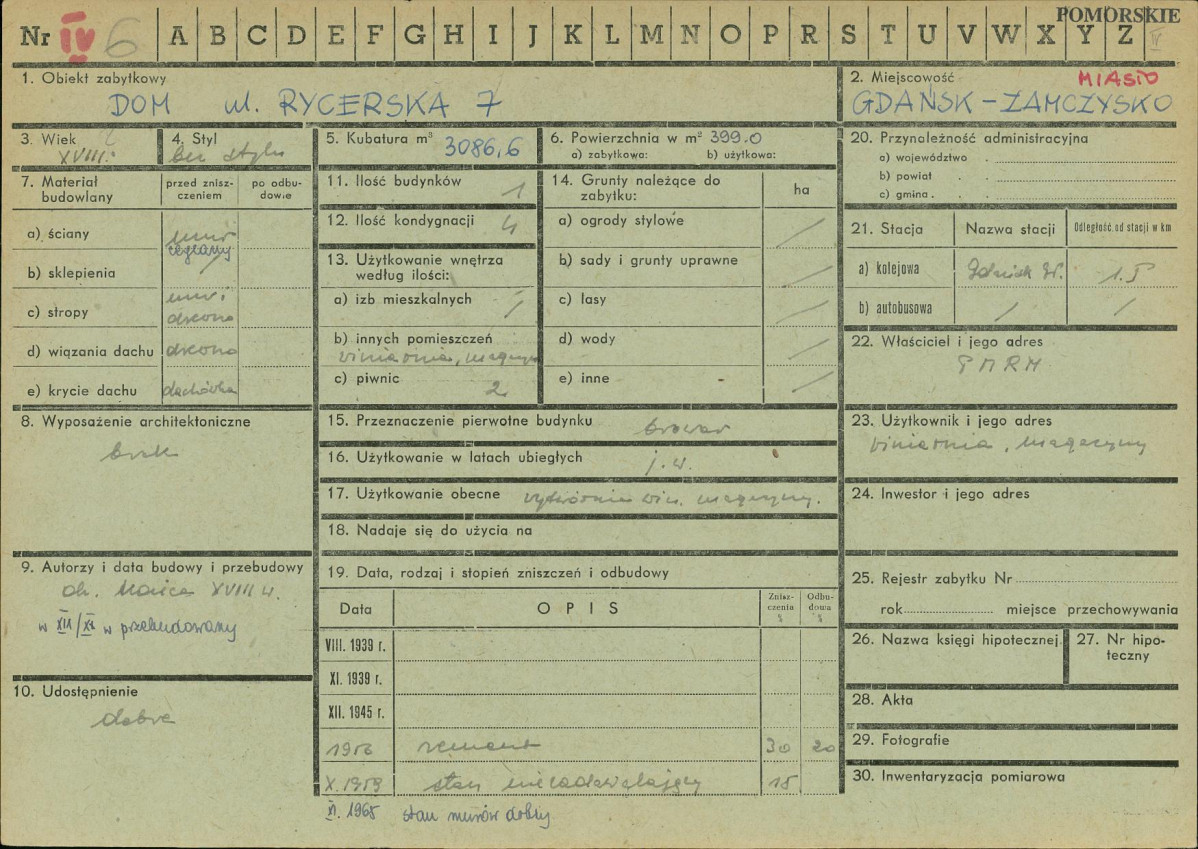 POMORSKIE
Nr IV 6 A B C D E F G H I J K L M N O P R S T U V W X Y Z IV
1. Obiekt zabytkowy
DOM ul. RYCERSKA 7
2. Miejscowość MIASTO
GDAŃSK - ZAMCZYSKO
3. Wiek
XVIII.
4. Styl
bez stylu
5. Kubatura m³ 3086,6
6. Powierzchnia w m² 399.0
a) zabytkowa: b) użytkowa:
7. Materiał budowlany
przed zniszczeniem
po odbudowie
a) ściany mur
ceglany
b) sklepienia /
c) stropy mur i
drewno
d) wiązania dachu drewno
e) krycie dachu dachówka
8. Wyposażenie architektoniczne
brak
9. Autorzy i data budowy i przebudowy
ok. końca XVIII w.
w XIX/XX w przebudowany
10. Udostępnienie
dobre
11. Ilość budynków 1
12. Ilość kondygnacji 4
13. Użytkowanie wnętrza
według ilości:
a) izb mieszkalnych /
b) innych pomieszczeń
winiarnia, magazyn
c) piwnic 2
14. Grunty należące do
zabytku:
ha
a) ogrody stylowe /
b) sady i grunty uprawne /
c) lasy /
d) wody /
e) inne /
15. Przeznaczenie pierwotne budynku browar
16. Użytkowanie w latach ubiegłych j.w.
17. Użytkowanie obecne wytwórnia win. magazyny.
18. Nadaje się do użycia na
19. Data, rodzaj i stopień zniszczeń i odbudowy
Data OPIS Zniszczenia % Odbudowa %
VIII. 1939 r.
XI. 1939 r.
XII. 1945 r.
1956 remont 30 20
X. 1959 stan niezadowalający 15
VI. 1965 stan murów dobry
20. Przynależność administracyjna
a) województwo
b) powiat
c) gmina
21. Stacja Nazwa stacji Odległość od stacji w km
a) kolejowa Gdańsk Gł. 1.5
b) autobusowa / /
22. Właściciel i jego adres
PMRN
23. Użytkownik i jego adres
winiarnia, magazyny
24. Inwestor i jego adres
25. Rejestr zabytku Nr
rok miejsce przechowywania
26. Nazwa księgi hipotecznej
27. Nr hipoteczny
28. Akta
29. Fotografie
30. Inwentaryzacja pomiarowa